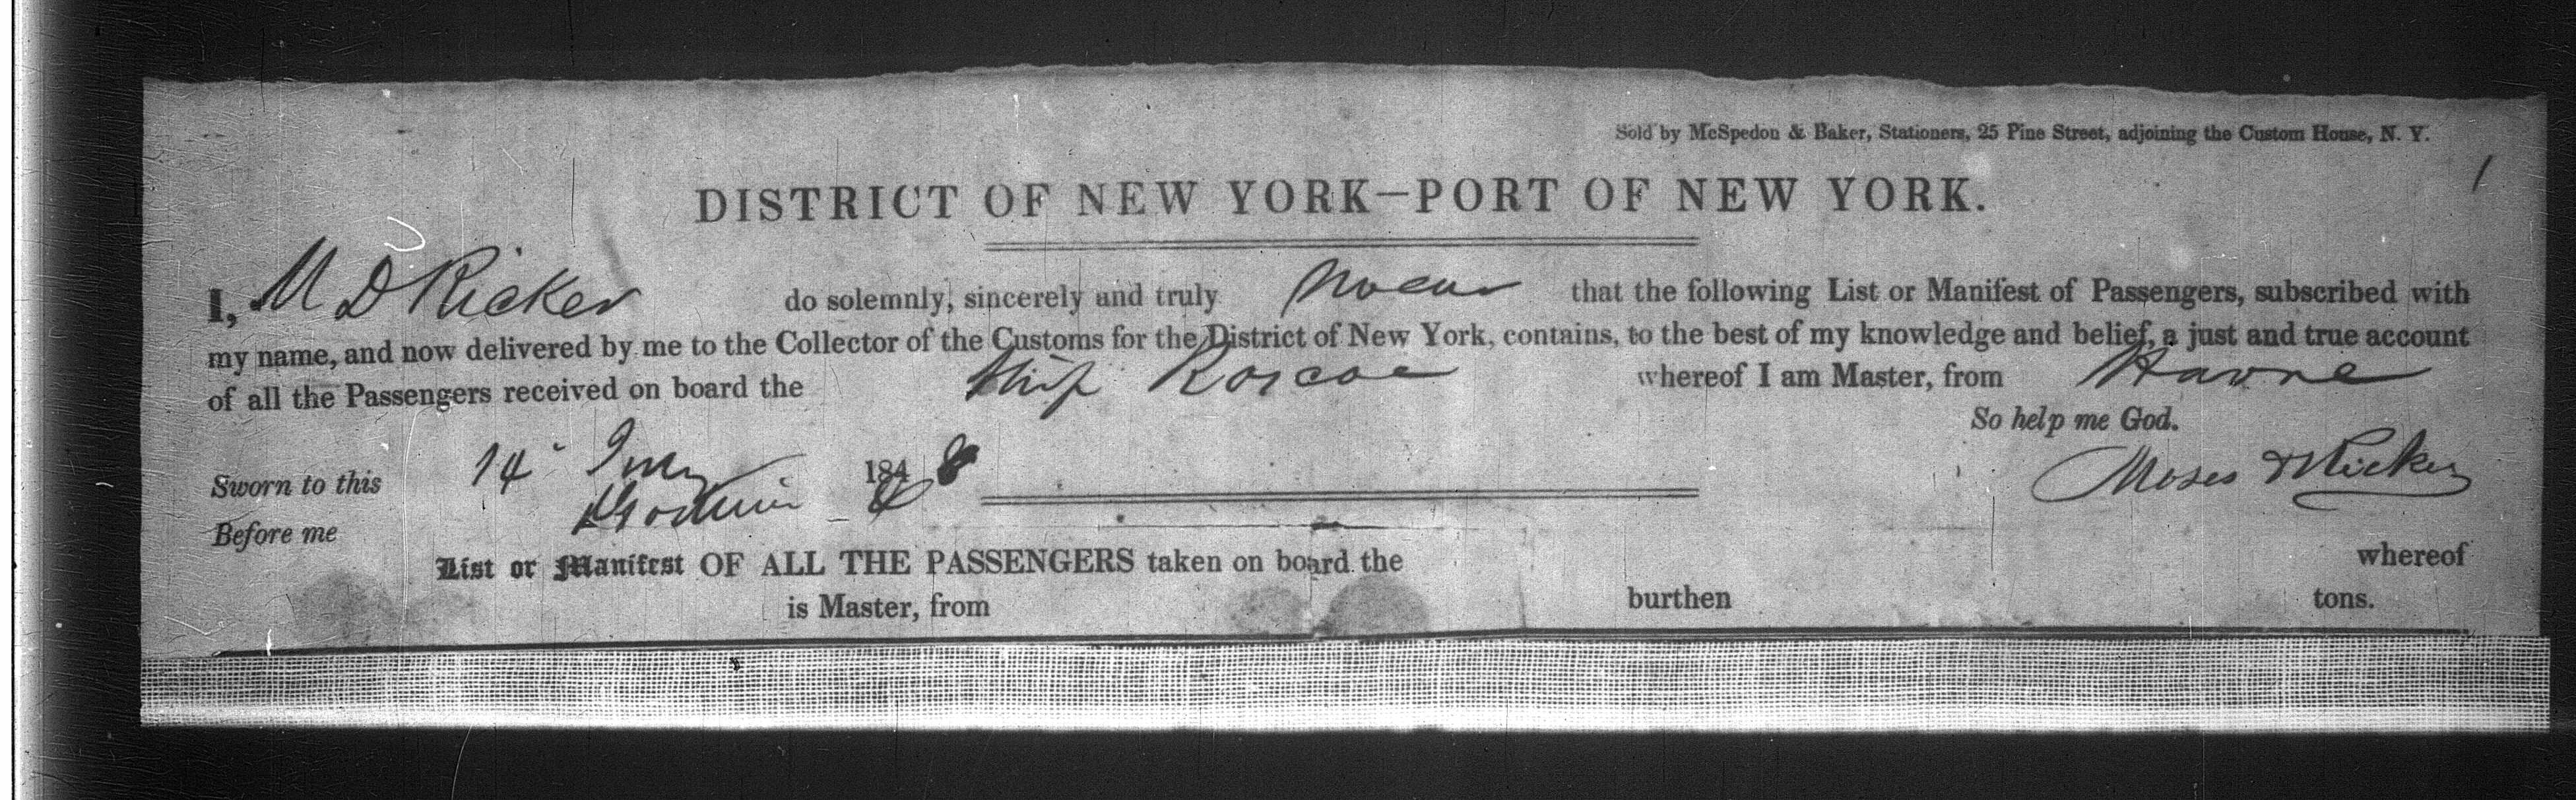 Sold by McSpedon & Baker, Stationers, 25 Pine Street, adjoining the Custom House, N. Y.
1
DISTRICT OF NEW YORK—PORT OF NEW YORK.
I, M D Ricker do solemnly, sincerely and truly swear that the following List or Manifest of Passengers, subscribed with
my name, and now delivered by me to the Collector of the Customs for the District of New York, contains, to the best of my knowledge and belief, a just and true account
of all the Passengers received on board the Ship Roscoe whereof I am Master, from Havre
So help me God.
Sworn to this 14 1848
Moses D Ricker
Before me
List or Manifest OF ALL THE PASSENGERS taken on board the whereof
is Master, from burthen tons.